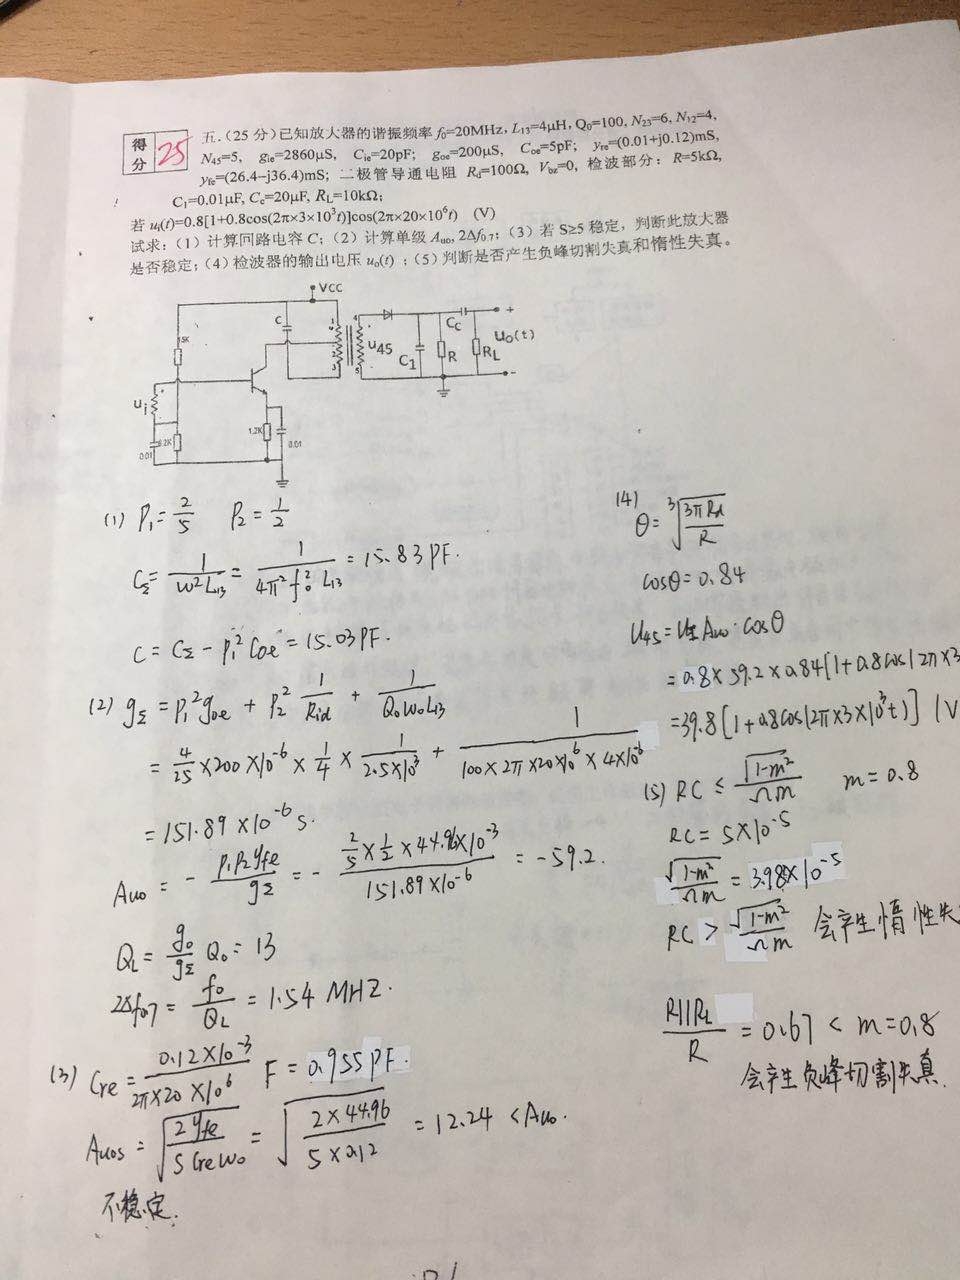 得分 25
五.(25分)已知放大器的谐振频率 f₀=20MHz, L₁₃=4μH, Q₀=100, N₂₃=6, N₁₂=4,
N₄₅=5, gᵢₑ=2860μS, Cᵢₑ=20pF; gₒₑ=200μS, Cₒₑ=5pF; yᵣₑ=(0.01+j0.12)mS,
y_fe=(26.4−j36.4)mS; 二极管导通电阻 R_d=100Ω, V_bz=0, 检波部分: R=5kΩ,
C₁=0.01μF, C_c=20μF, R_L=10kΩ;
若 uᵢ(t)=0.8[1+0.8cos(2π×3×10³t)]cos(2π×20×10⁶t) (V)
试求:(1)计算回路电容 C;(2)计算单级 Aᵤₒ, 2Δf₀.₇;(3)若 S≥5 稳定,判断此放大器
是否稳定;(4)检波器的输出电压 uₒ(t) ;(5)判断是否产生负峰切割失真和惰性失真。
VCC
C
1
2
3
4
5
u₄₅
C₁
R
C_C
R_L
+
uₒ(t)
-
15K
uᵢ
0.01
6.2K
1.2K
0.01
(1) P₁=2/5 P₂=1/2
C_Σ=1/(ω²L₁₃)=1/(4π²f₀²L₁₃)=15.83PF.
C=C_Σ−P₁²Cₒₑ=15.03PF.
(2) g_Σ=P₁²gₒₑ+P₂² 1/R_id + 1/(Q₀ω₀L₁₃)
=4/25×200×10⁻⁶×1/4×1/(2.5×10³)+1/(100×2π×20×10⁶×4×10⁻⁶)
=151.89×10⁻⁶s.
Aᵤₒ=−P₁P₂y_fe/g_Σ=−(2/5×1/2×44.96×10⁻³)/(151.89×10⁻⁶)=−59.2.
Q_L=g₀/g_Σ Q₀=13
2Δf₀.₇=f₀/Q_L=1.54MHZ.
(3) Cre=0.12×10⁻³/(2π×20×10⁶) F=0.955PF.
Aᵤₒₛ=√(2y_fe/(SCreω₀))=√(2×44.96/(5×0.12))=12.24<Aᵤₒ.
不稳定.
(4)
θ=∛(3πR_d/R)
cosθ=0.84
U₄₅=UᵢAᵤₒ·cosθ
=0.8×59.2×0.84[1+0.8cos(2π×3
=39.8[1+0.8cos(2π×3×10³t)](V
(5) RC≤√(1-m²)/(Ωm) m=0.8
RC=5×10⁻⁵
√(1-m²)/(Ωm)=3.98×10⁻⁵
RC>√(1-m²)/(Ωm) 会产生惰性失
R||R_L/R=0.67<m=0.8
会产生负峰切割失真.